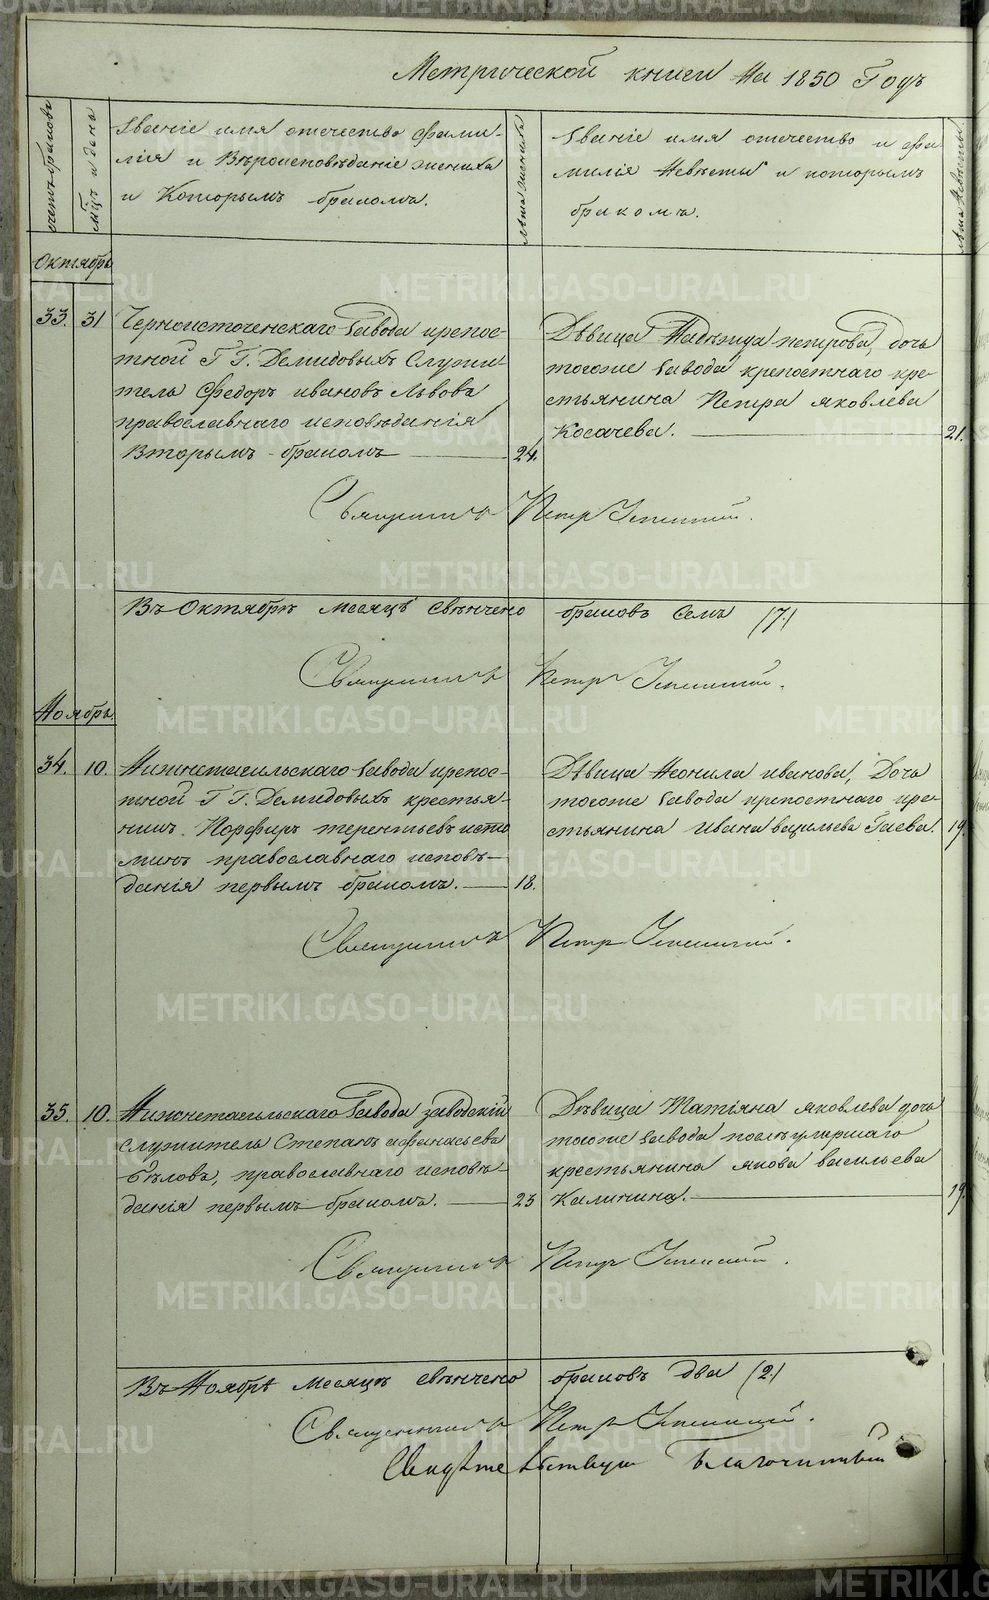 Метрической книги На 1850 Годъ
счетъ браковъ
Мцъ и день
Званіе имя отечество фами-
лія и Вѣроисповѣданіе жениха
и Которымъ бракомъ.
лѣта жениха
Званіе имя отечество и фа
милія Невѣсты и которымъ
бракомъ.
лѣта Невѣсты
Октябрь
33. 31
Черноисточенскаго Завода крепос-
тной Г Г. Демидовыхъ Служи-
тель Федоръ ивановъ Львова
православнаго исповѣданія
Вторымъ бракомъ 24.
Дѣвица Надѣжда петрова, дочь
тогоже Завода крепостнаго кре-
стьянина Петра яковлева
Косачева. 21.
Священникъ Петр Успенский.
Въ Октябрѣ месяцѣ свѣнчено браковъ Семь /7/
Священникъ Петр Успенский.
Ноябрь
34. 10.
Нижнетагильскаго Завода крепос-
тной Г Г. Демидовыхъ крестья-
нинъ Порфиръ терентьевъ исто
минъ православнаго исповѣ-
данія первымъ бракомъ. 18.
Дѣвица Неонила иванова, Дочь
тогоже Завода крепостнаго кре-
стьянина Ивана васильева Гаева. 19.
Священникъ Петр Успенский.
35. 10.
Нижнетагильскаго Завода заводский
служитель Степанъ афанасьева
Бѣлова, православнаго исповѣ-
данія первымъ бракомъ. 23
Дѣвица Татіяна яковлева дочь
тогоже Завода послѣ умершаго
крестьянина якова васильева
Калинина. 19.
Священникъ Петръ Успенский.
Въ Ноябрѣ месяцѣ свѣнчено браковъ два /2/
Священникъ Петр Успенский.
Свидѣтельствую Благочинный
METRIKI.GASO-URAL.RU